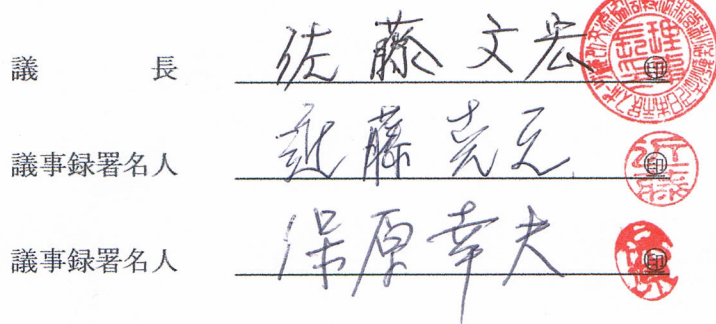 議長 佐藤文宏 ㊞
議事録署名人 近藤克之 ㊞
議事録署名人 保原幸夫 ㊞